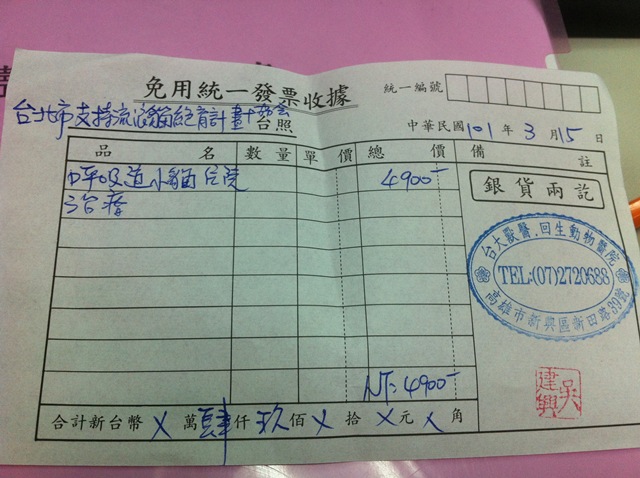 免用統一發票收據
統一編號
台北市支持流浪貓絕育計畫協會 台照
中華民國101年3月15日
品名 數量 單價 總價 備註
呼吸道小貓住院 4900-
治療
銀貨兩訖
台大獸醫.回生動物醫院
TEL:(07)2720688
高雄市新興區新田路39號
NT: 4900-
吳建興
合計新台幣 X 萬肆仟玖佰 X 拾 X 元 X 角